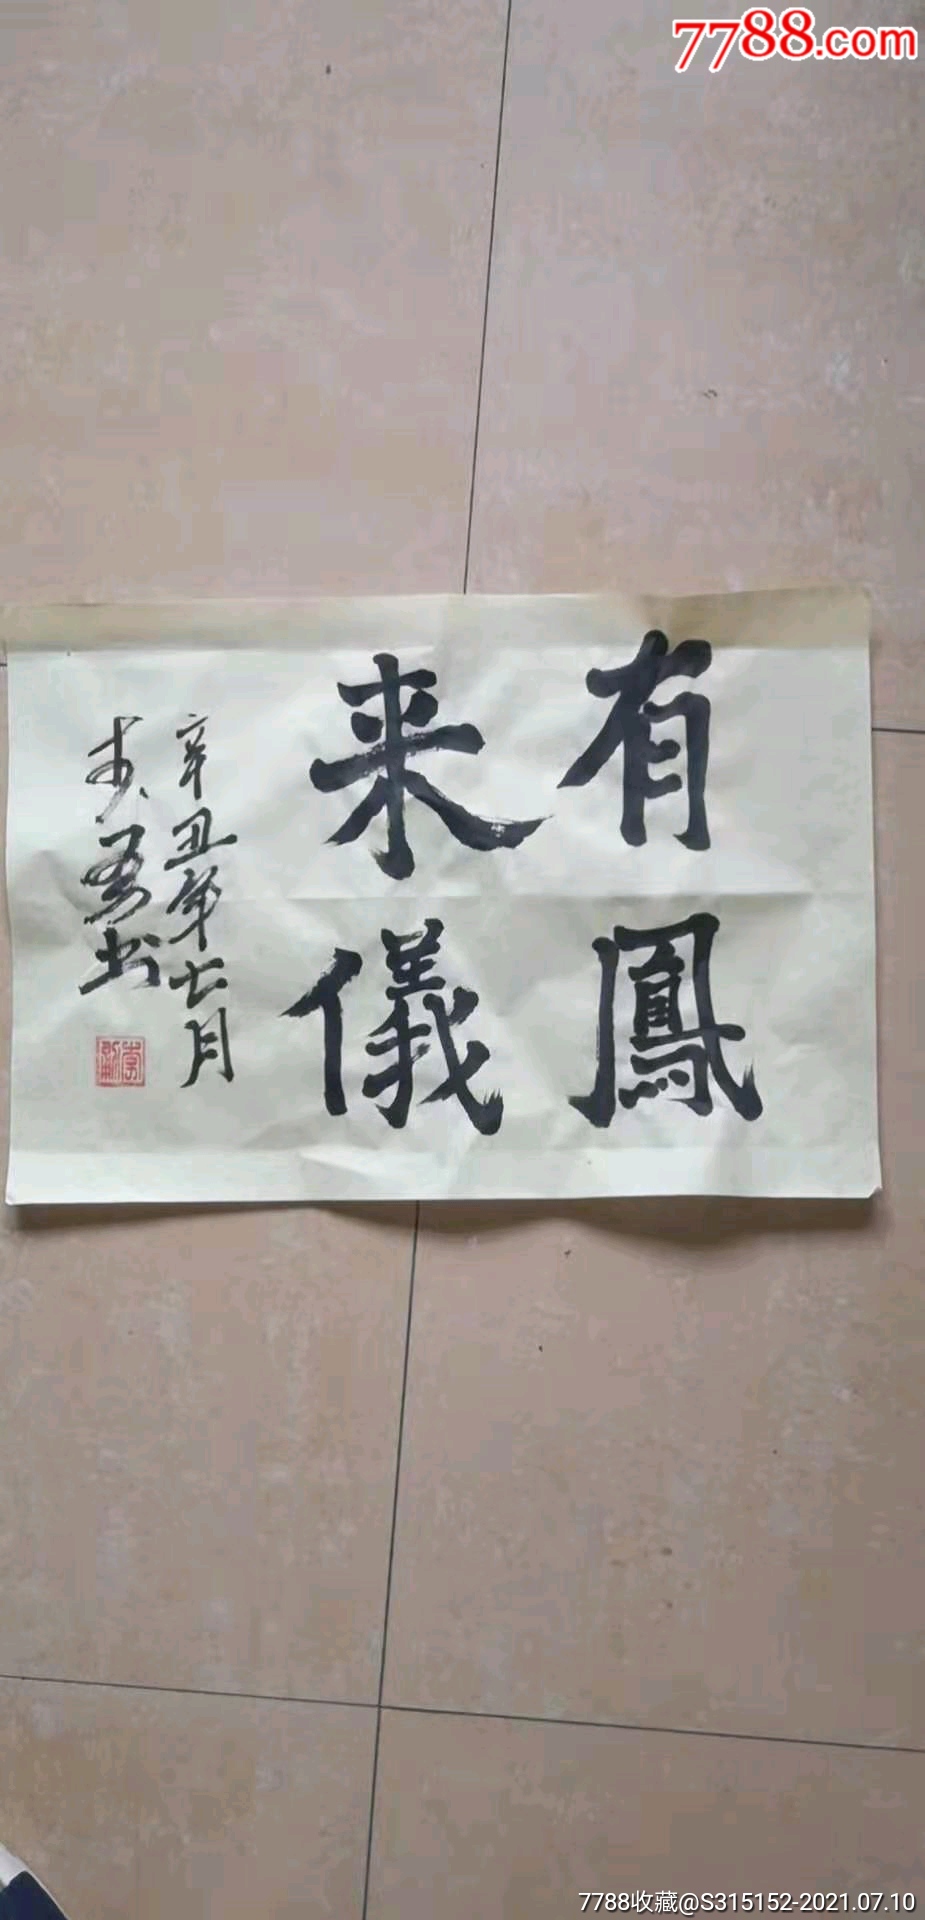 7788.com
有鳳
来儀
辛丑年七月
李勇书
7788收藏@S315152-2021.07.10